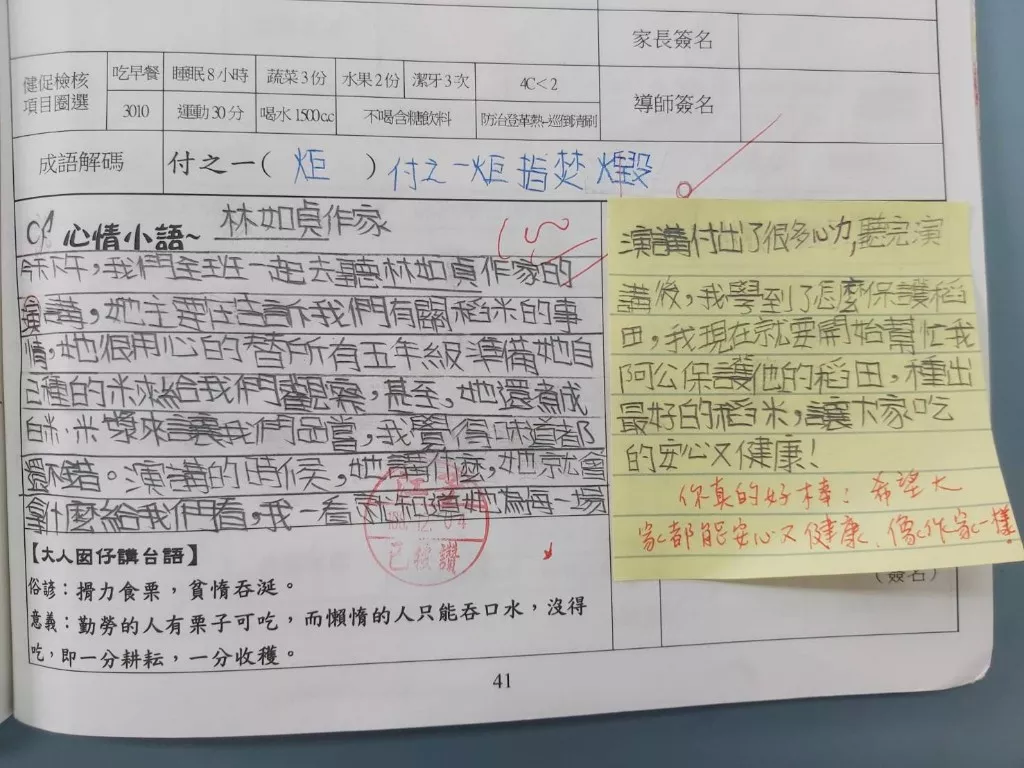 家長簽名
健促檢核
項目圈選
吃早餐 睡眠8小時 蔬菜3份 水果2份 潔牙3次 4C<2
3010 運動30分 喝水1500c.c 不喝含糖飲料 防治登革熱-巡倒清刷
導師簽名
成語解碼 付之一( 炬 ) 付之一炬指焚燬
心情小語~ 林如貞作家
今天下午,我們全班一起去聽林如貞作家的
演講,她主要在告訴我們有關稻米的事
情,她很用心的替所有五年級準備她自
己種的米來給我們觀察,甚至,她還煮成
白米、米漿來讓我們品嘗,我覺得味道都
還不錯。演講的時候,她講什麼,她就會
拿什麼給我們看,我一看就知道她為每一場
演講付出了很多心力,聽完演
講後,我學到了怎麼保護稻
田,我現在就要開始幫忙我
阿公保護他的稻田,種出
最好的稻米,讓大家吃
的安心又健康!
你真的好棒!希望大
家都能安心又健康、像作家一樣。
(簽名)
已按讚
【大人囡仔講台語】
俗諺:搰力食栗,貧惰吞涎。
意義:勤勞的人有栗子可吃,而懶惰的人只能吞口水,沒得
吃,即一分耕耘,一分收穫。
41